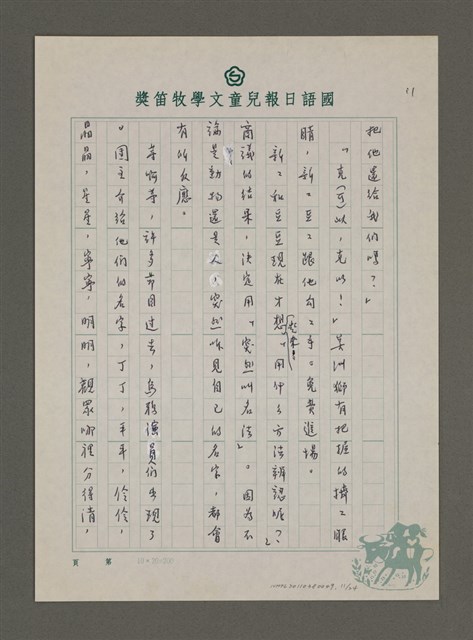 國語日報兒童文學牧笛獎
11
把他還給我們嗎？」
「克(可)以，克以！」美洲獅有把握的擠ㄑ眼
睛，新ㄑ豆ㄑ跟他勾ㄑ手ㄑ免費進場。
新ㄑ和豆豆現在才想起來！「用什么方法辨認呢？」
商議的結果，決定用「突然叫名法」。因為不
論是動物還是人，突然听見自己的名字，都會
有的反應。
等啊等，許多節目过去，馬戲演員們出現了
。團主介紹他們的名字，丁丁，平平，伶伶，
晶晶，星星，寧寧，明明，觀眾哪裡分得清，
第 頁